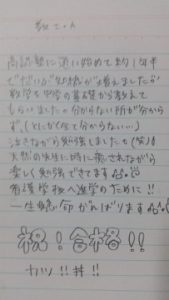 高認塾に通い始めて約1年半
でだいぶ知識が増えましたが
数学を中学の基礎から教えて
もらいました。分からない所が分から
ず、(とにかく全て分からない…)
泣きながら勉強してました(笑)
天然の先生に時に癒されながら
楽しく勉強できてます
看護学校へ進学のために!!
一生懸命がんばります
祝!合格!!